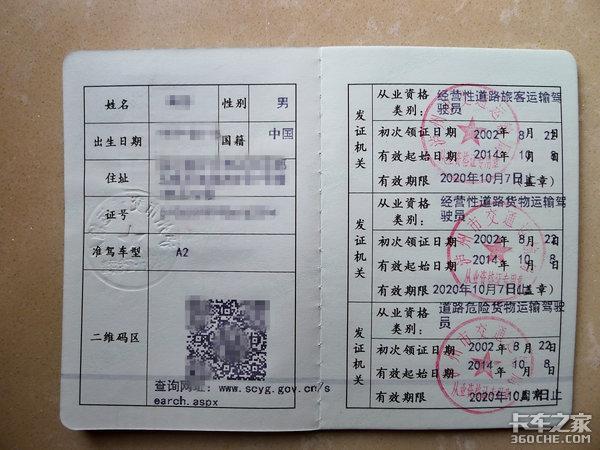 姓名 性别 男
出生日期 国籍 中国
住址
证号
准驾车型 A2
二维码区
查询网址：www.scyg.gov.cn/s
earch.aspx
发证机关
从业资格 经营性道路旅客运输驾
类别： 驶员
初次领证日期 2002年 8月 22日
有效起始日期 2014年 10月 8日
有效期限 2020年10月7日止(盖章)
发证机关
从业资格 经营性道路货物运输驾
类别： 驶员
初次领证日期 2002年 8月 22日
有效起始日期 2014年 10月 8日
有效期限 2020年10月7日止(盖章)
发证机关
从业资格 道路危险货物运输驾驶
类别： 员
初次领证日期 2002年 8月 22日
有效起始日期 2014年 10月 8日
有效期限
从业资格证专用章
卡车之家
360CHE.COM